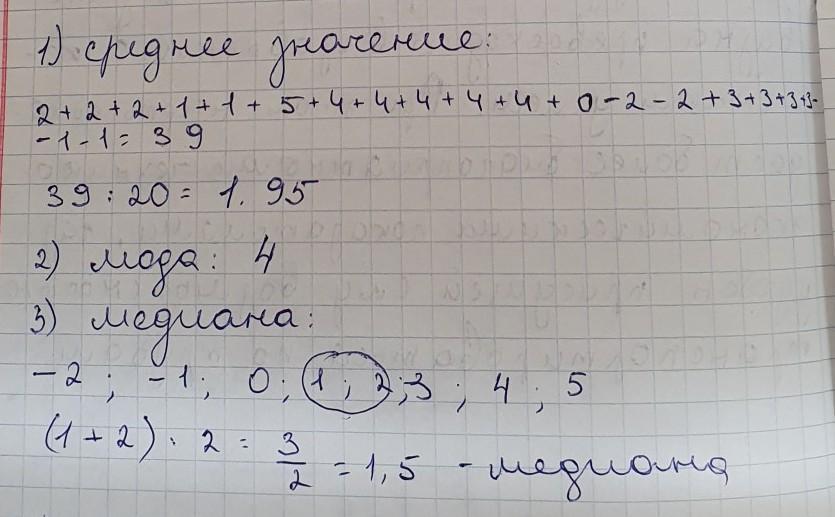 1) среднее значение:
2 + 2 + 2 + 1 + 1 + 5 + 4 + 4 + 4 + 4 + 4 + 0 - 2 - 2 + 3 + 3 + 3 + 3 -
- 1 - 1 = 39
39 : 20 = 1. 95
2) мода: 4
3) медиана:
-2 ; -1 ; 0 ; 1 ; 2 ; 3 ; 4 ; 5
(1 + 2) : 2 = 3/2 = 1,5 - медиана